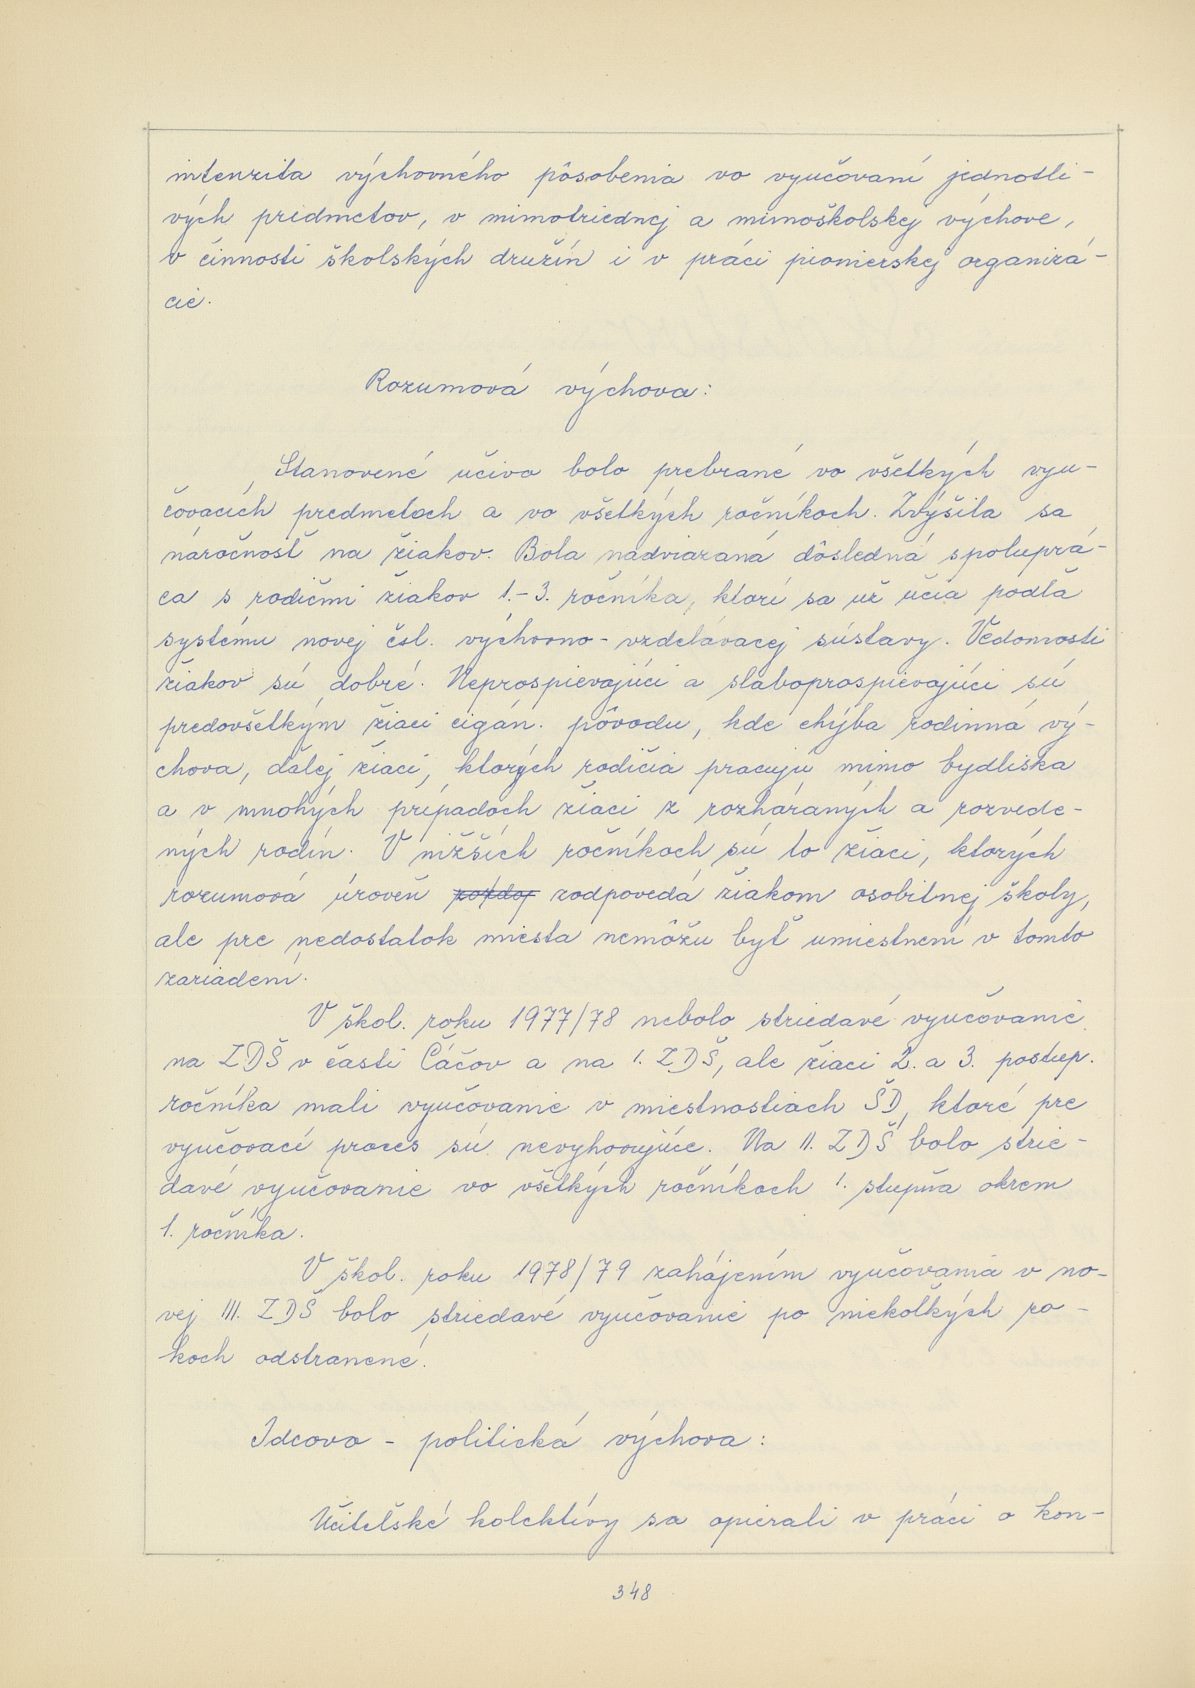 intenzita výchovného pôsobenia vo vyučovaní jednotli-
vých predmetov, v mimotriednej a mimoškolskej výchove,
v činnosti školských družín i v práci pionierskej organizá-
cie.
Rozumová výchova:
Stanovené učivo bolo prebrané vo všetkých vyu-
čovacích predmetoch a vo všetkých ročníkoch. Zvýšila sa
náročnosť na žiakov. Bola nadviazaná dôsledná spoluprá-
ca s rodičmi žiakov 1.-3. ročníka, ktorí sa už učia podľa
systému novej čsl. výchovno-vzdelávacej sústavy. Vedomosti
žiakov sú dobré. Neprospievajúci a slaboprospievajúci sú
predovšetkým žiaci cigán. pôvodu, kde chýba rodinná vý-
chova, ďalej žiaci, ktorých rodičia pracujú mimo bydliska
a v mnohých prípadoch žiaci z rozháraných a rozvede-
ných rodín. V nižších ročníkoch sú to žiaci, ktorých
rozumová úroveň zodpovedá žiakom osobitnej školy,
ale pre nedostatok miesta nemôžu byť umiestnení v tomto
zariadení.
V škol. roku 1977/78 nebolo striedavé vyučovanie
na ZDŠ v časti Čáčov a na 1. ZDŠ, ale žiaci 2. a 3. postup.
ročníka mali vyučovanie v miestnostiach ŠD, ktoré pre
vyučovací proces sú nevyhovujúce. Na II. ZDŠ bolo strie-
davé vyučovanie vo všetkých ročníkoch 1. stupňa okrem
1. ročníka.
V škol. roku 1978/79 zahájením vyučovania v no-
vej III. ZDŠ bolo striedavé vyučovanie po niekoľkých ro-
koch odstranené.
Ideovo - politická výchova:
Učiteľské kolektívy sa opierali v práci o kon-
348